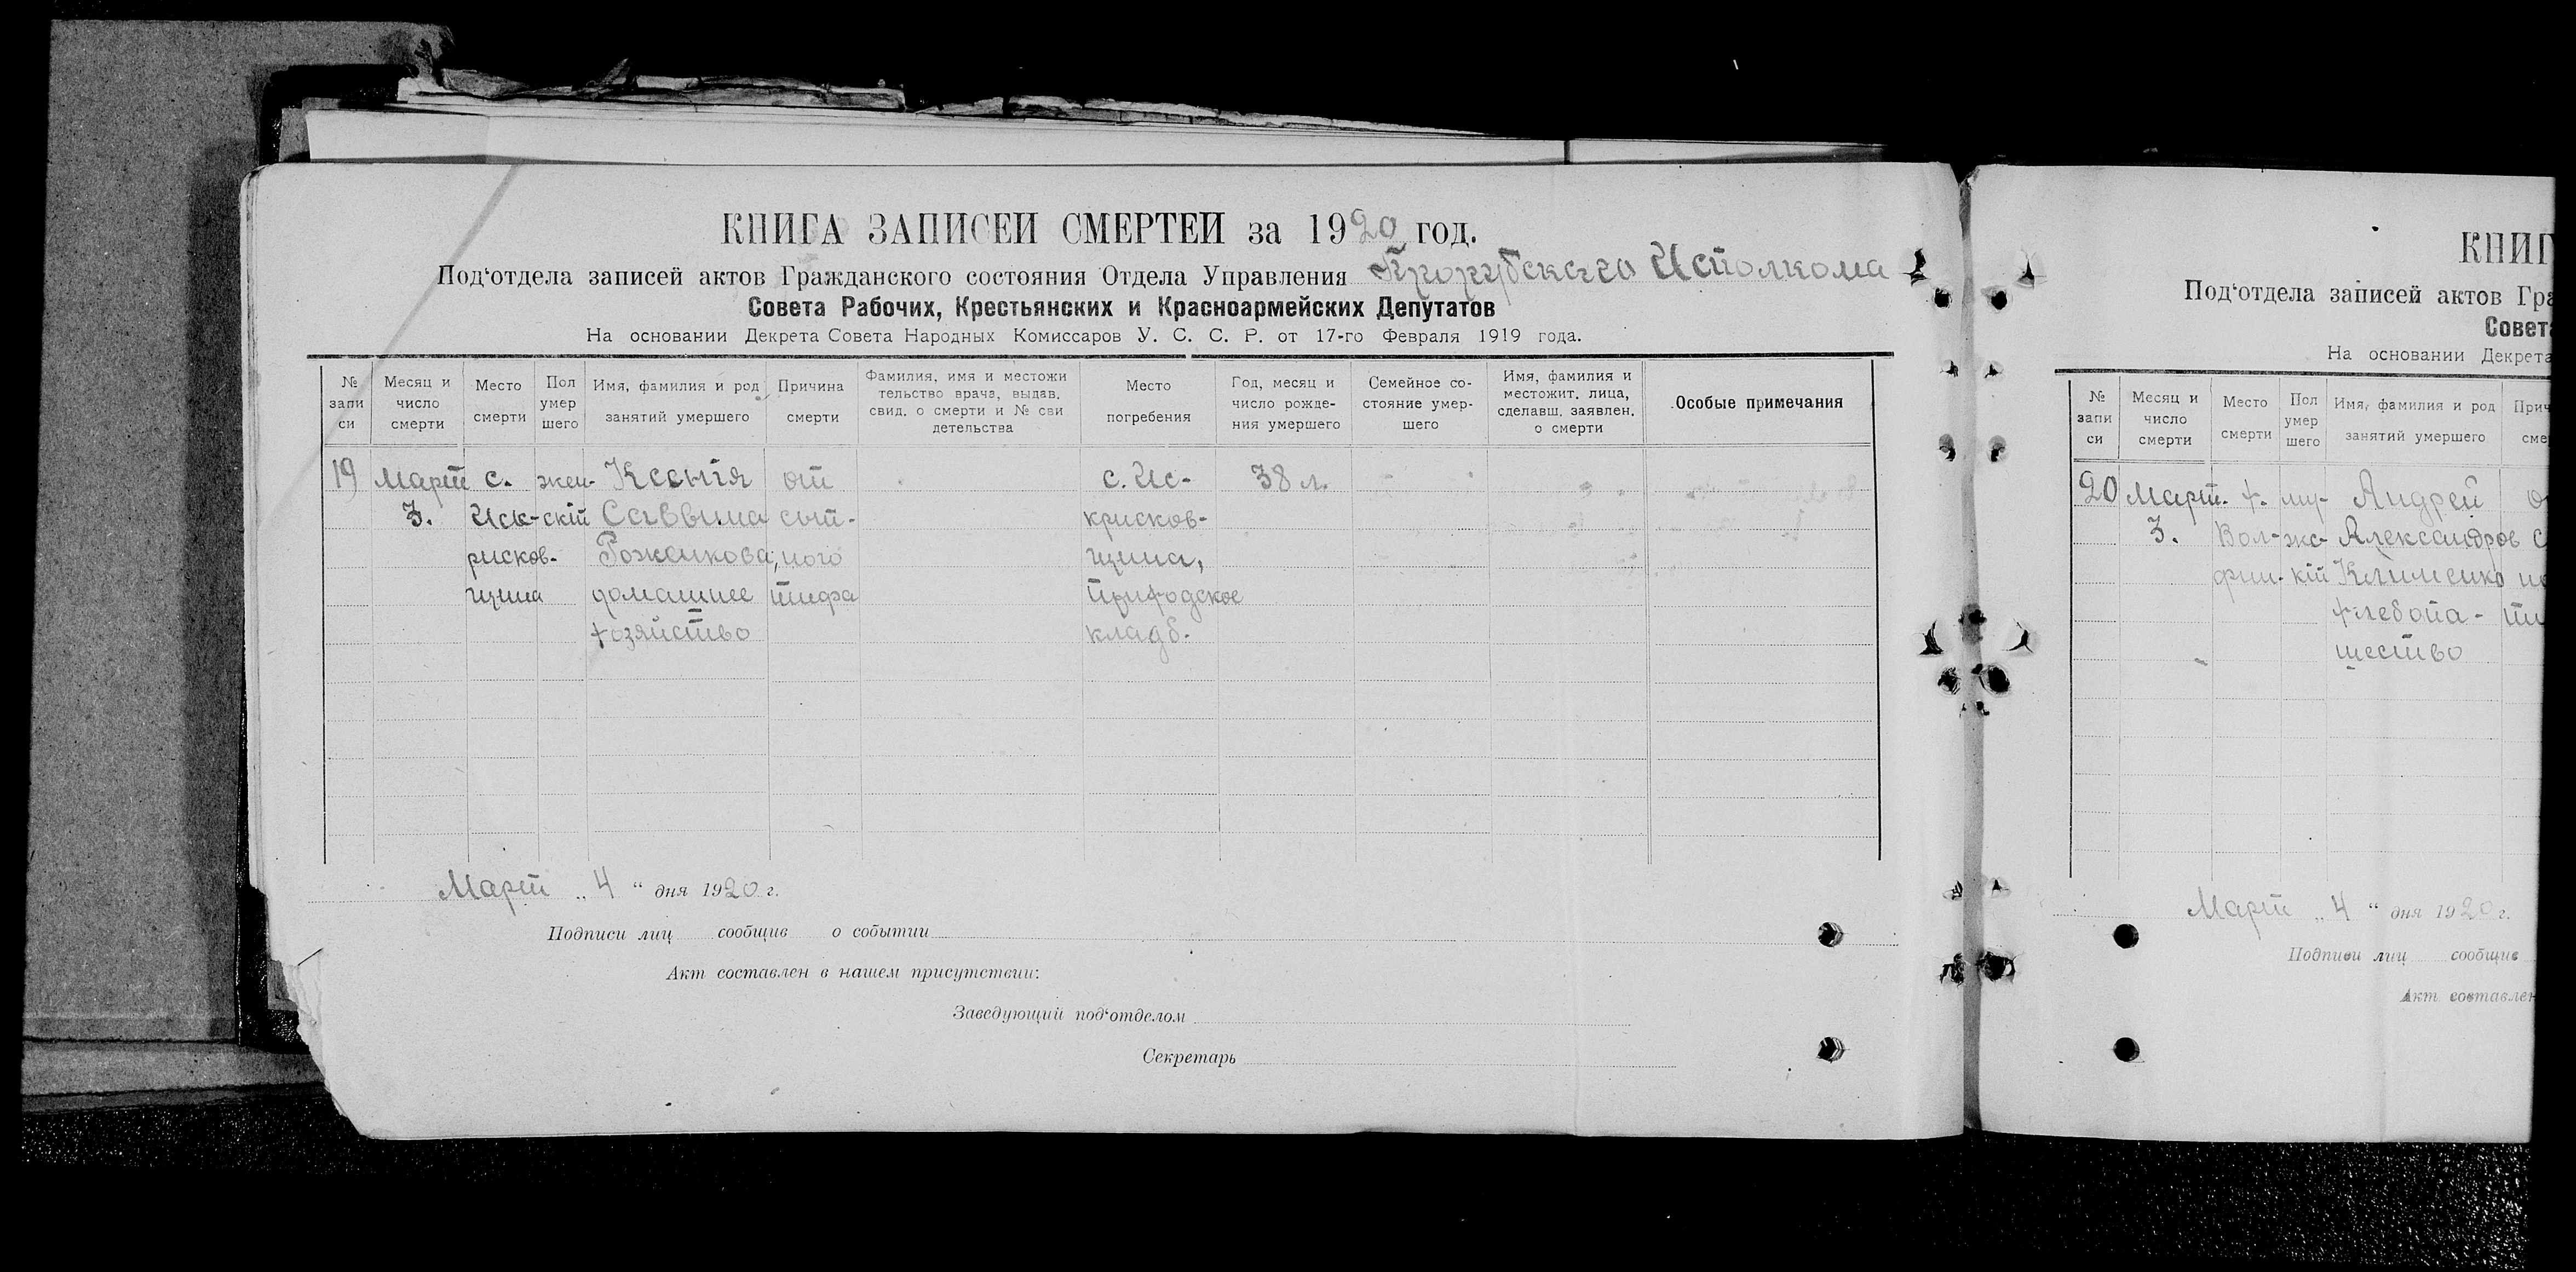 КНИГА ЗАПИСЕЙ СМЕРТЕЙ за 1920 год.
Под‘отдела записей актов Гражданского состояния Отдела Управления Исполкома
Совета Рабочих, Крестьянских и Красноармейских Депутатов
На основании Декрета Совета Народных Комиссаров У. С. С. Р. от 17-го Февраля 1919 года.
№ запи си
Месяц и число смерти
Место смерти
Пол умер шего
Имя, фамилия и род занятий умершего
Причина смерти
Фамилия, имя и местожи тельство врача, выдав. свид. о смерти и № сви детельства
Место погребения
Год, месяц и число рожде- ния умершего
Семейное со- стояние умер- шего
Имя, фамилия и местожит. лица, сделавш. заявлен. о смерти
Особые примечания
19 Март с. жен- Ксенія от с. Ис- 38 л.
3. Иск- скій Саввина сып- крисков-
рисков- Роженкова, ного щина,
щина домашнее тифа Приходское
хозяйство кладб.
Март „ 4 “ дня 1920 г.
Подписи лиц сообщив о событии
Акт составлен в нашем присутствии:
Заведующий под‘отделом
Секретарь
КНИГ
Под‘отдела записей актов Гра
Совета
На основании Декрета
№ запи си
Месяц и число смерти
Место смерти
Пол умер шего
Имя, фамилия и род занятий умершего
Прич сме
20 Март. х. му- Андрей о
3. Вол- жс- Александров с
фин- кій Клименко но
хлебопа- ти
шество
Март „ 4 “ дня 1920 г.
Подписи лиц сообщив
Акт составлен